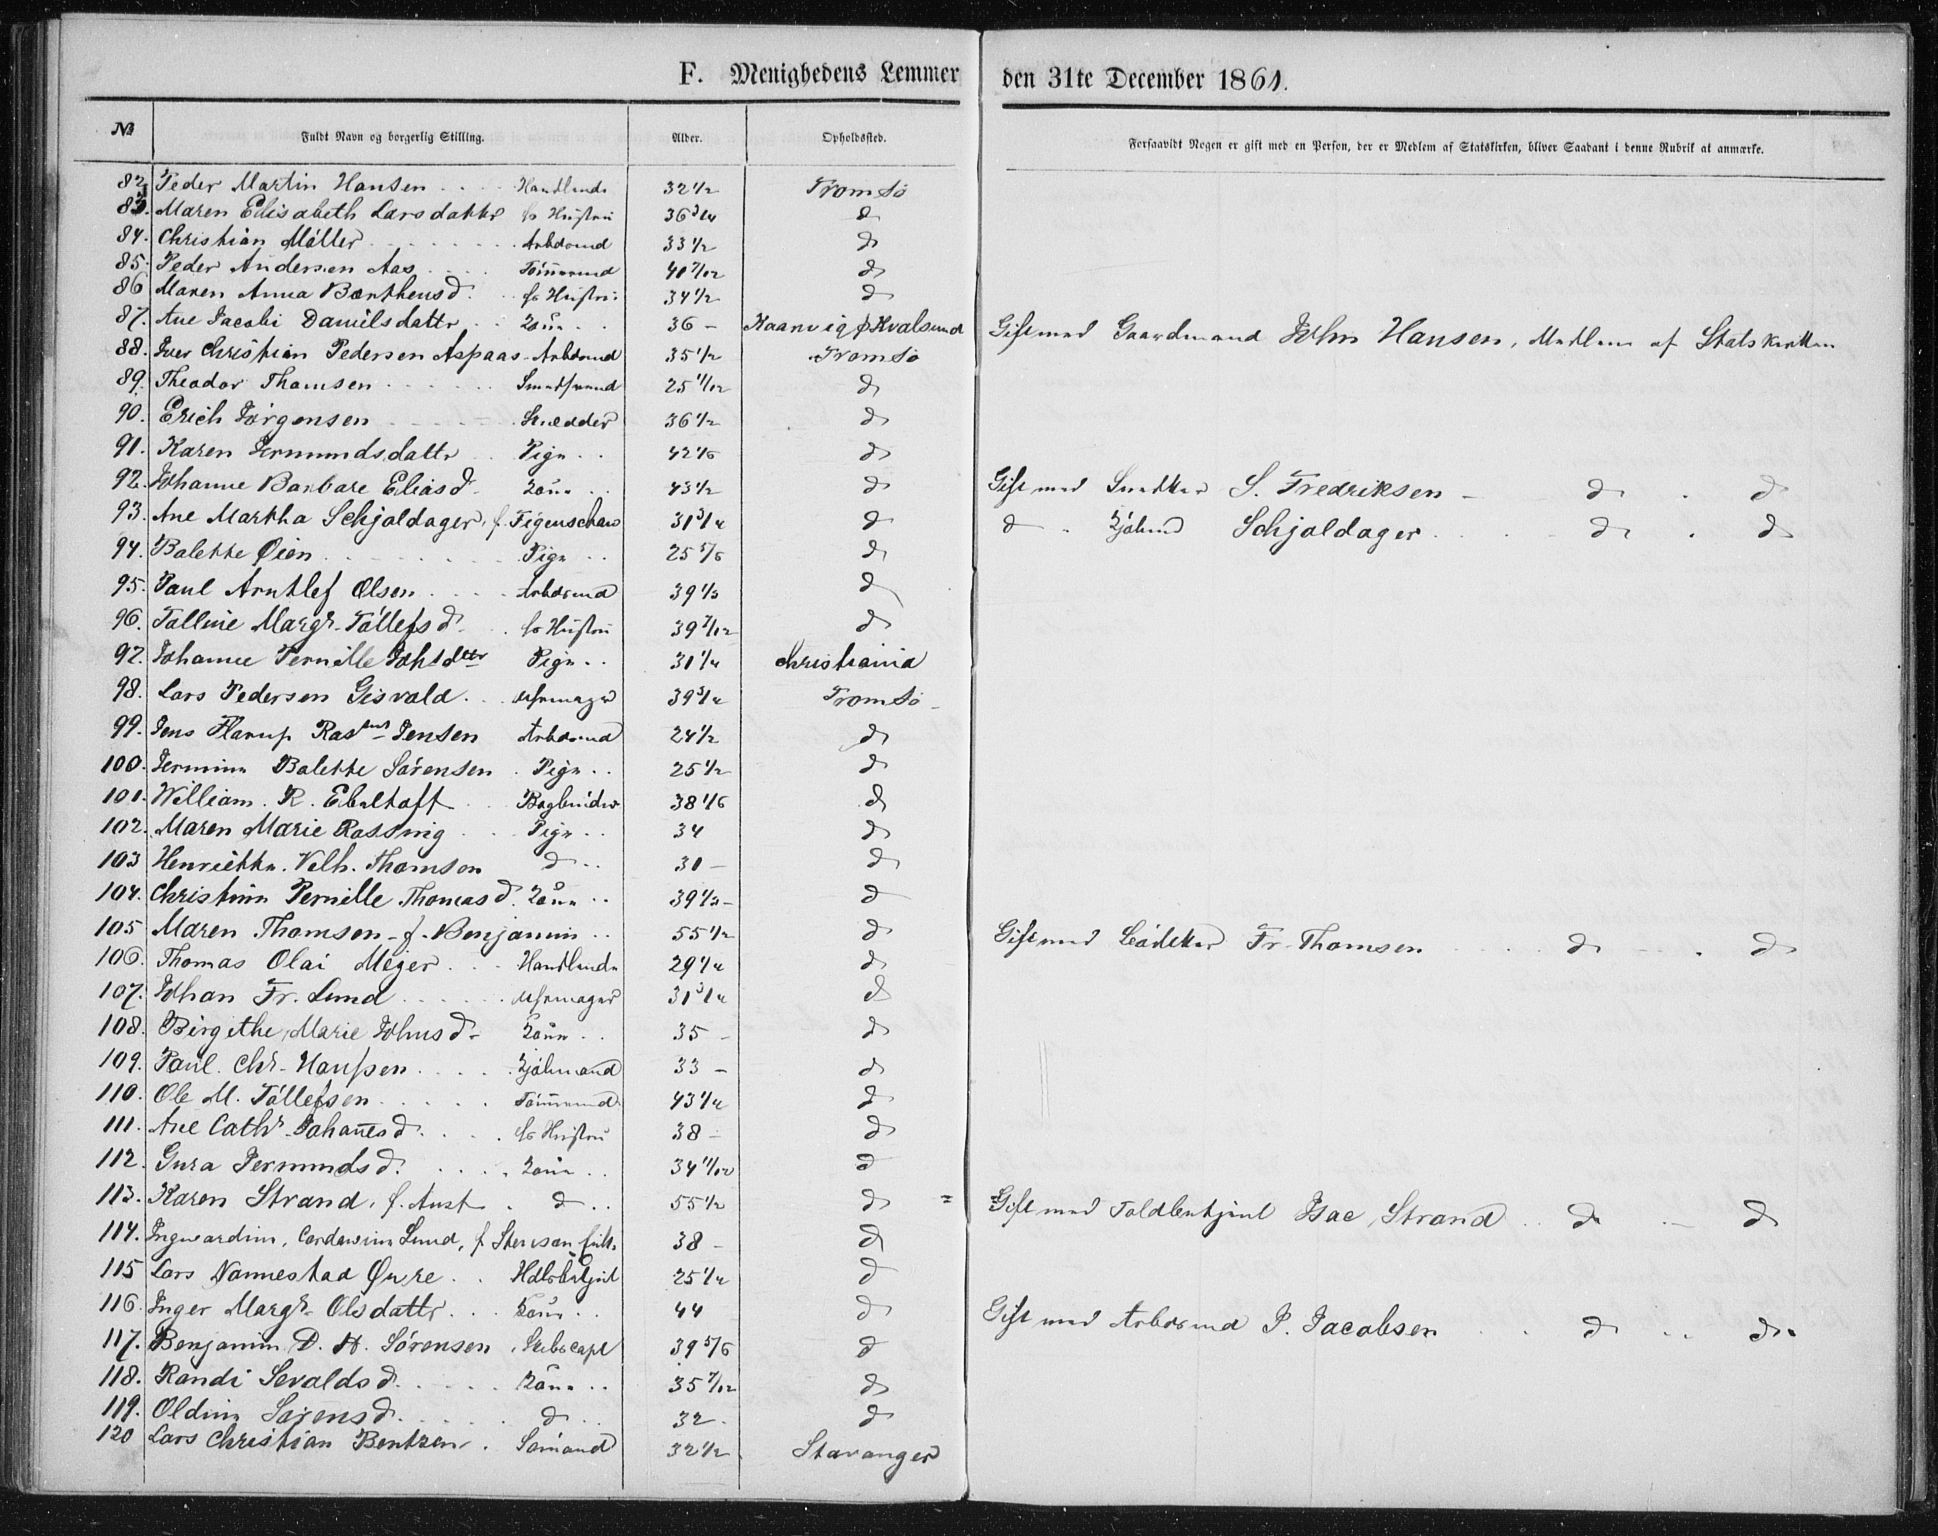 F. Menighedens Lemmer den 31te December 1861.
№ Fuldt Navn og borgerlig Stilling. Alder. Opholdssted. Forsaavidt Nogen er gift med en Person, der er Medlem af Statskirken, bliver Saadant i denne Rubrik at anmærke.
82 Peder Martin Hansen Handlende 32 1/2 Tromsö
83. Maren Elisabeth Larsdatter hs Hustru 36 3/4 d
84. Christian Möller Arbdsmd 33 1/2 d
85. Peder Andersen Aas Tömmermd 40 7/12 d
86 Maren Anna Barthensd. hs Hustru 34 1/2 d
87. Ane Jacobi Danielsdattr Kone 36 - Kaarvig Kvalsund Gift med Gaardmand John Hansen, Medlem af Statskirken
88. Iver Christian Pedersen Aspaas Arbdsmd 35 1/2 Tromsö
89. Theodor Thomsen 25 11/12 d
90. Erich Jörgensen Skrædder 36 1/2 d
91. Karen Jermundsdattr Pige 42 1/6 d
92. Johanne Barbare Eliasd. Kone 43 1/2 d Gift med Snedker S. Fredriksen - d . d
93. Ane Martha Schjoldager, f. Figenschau 31 3/4 d d - Sjömd Schjoldager d . d
94. Balette Øien Pige 25 5/6 d
95. Paul Arntlef Olsen Arbdsmd 39 1/3 d
96. Talline Margr. Tóllefsd. hs Hustru 39 7/12 d
97. Johanne Pernille Johsdttr Pige 31 1/4 Christiania
98. Lars Pedersen Gisvold Uhrmager 39 3/4 Tromsö
99. Jens Flarup Rasms Jensen Arbdsmd 24 1/2 d
100. Jermine Balette Sörensen Pige 25 1/2 d
101. William. R. Ebeltoft Bogbinder 38 1/6 d
102. Maren Marie Rossvig Pige 34 d
103 Henriette. Vilh. Thomsen d 30 - d
104. Christine Pernille Thomasd. Kone 39 1/3 - d
105 Maren Thomsen - f. Benjamin 55 1/2 d Gift med Fr. Thomsen d - . d
106. Thomas Olai Meyer Handlende 29 1/4 d
107. Johan Fr. Lund Uhrmager 31 3/4 d
108. Birgithe Marie Johnsd. Kone 35 - d
109. Paul. Chr. Hanssen Sjömand 33 - d
110. Ole M. Tóllefsen Tömmermd. 43 1/4 d
111. Ane Cathr. Johanesd. hs Hustru 38 - d
112. Gura Jermundsd. Kone 34 11/12 d
113. Karen Strand, f. Aust d 55 1/2 d = =Gift med Toldbetjent Isac Strand d - d
114. Ingvardine, Cordewine Lund, f Stenson 38 - d
115 Lars Nannestad Øwre Hdlsbetjent 25 1/4 d
116. Inger Margr. Olsdattr Kone 44 d Gift med Arbdsmd P. Jacobsen d d.
117. Benjamin D. H. Sörensen Skibscapt 39 5/6 d
118. Randi Sevaldsd. Kone 35 7/12 d
119. Oldine Sörensd. d 32 d
120 Lars Christian Bentzen Sömand 32 1/2 Stavanger